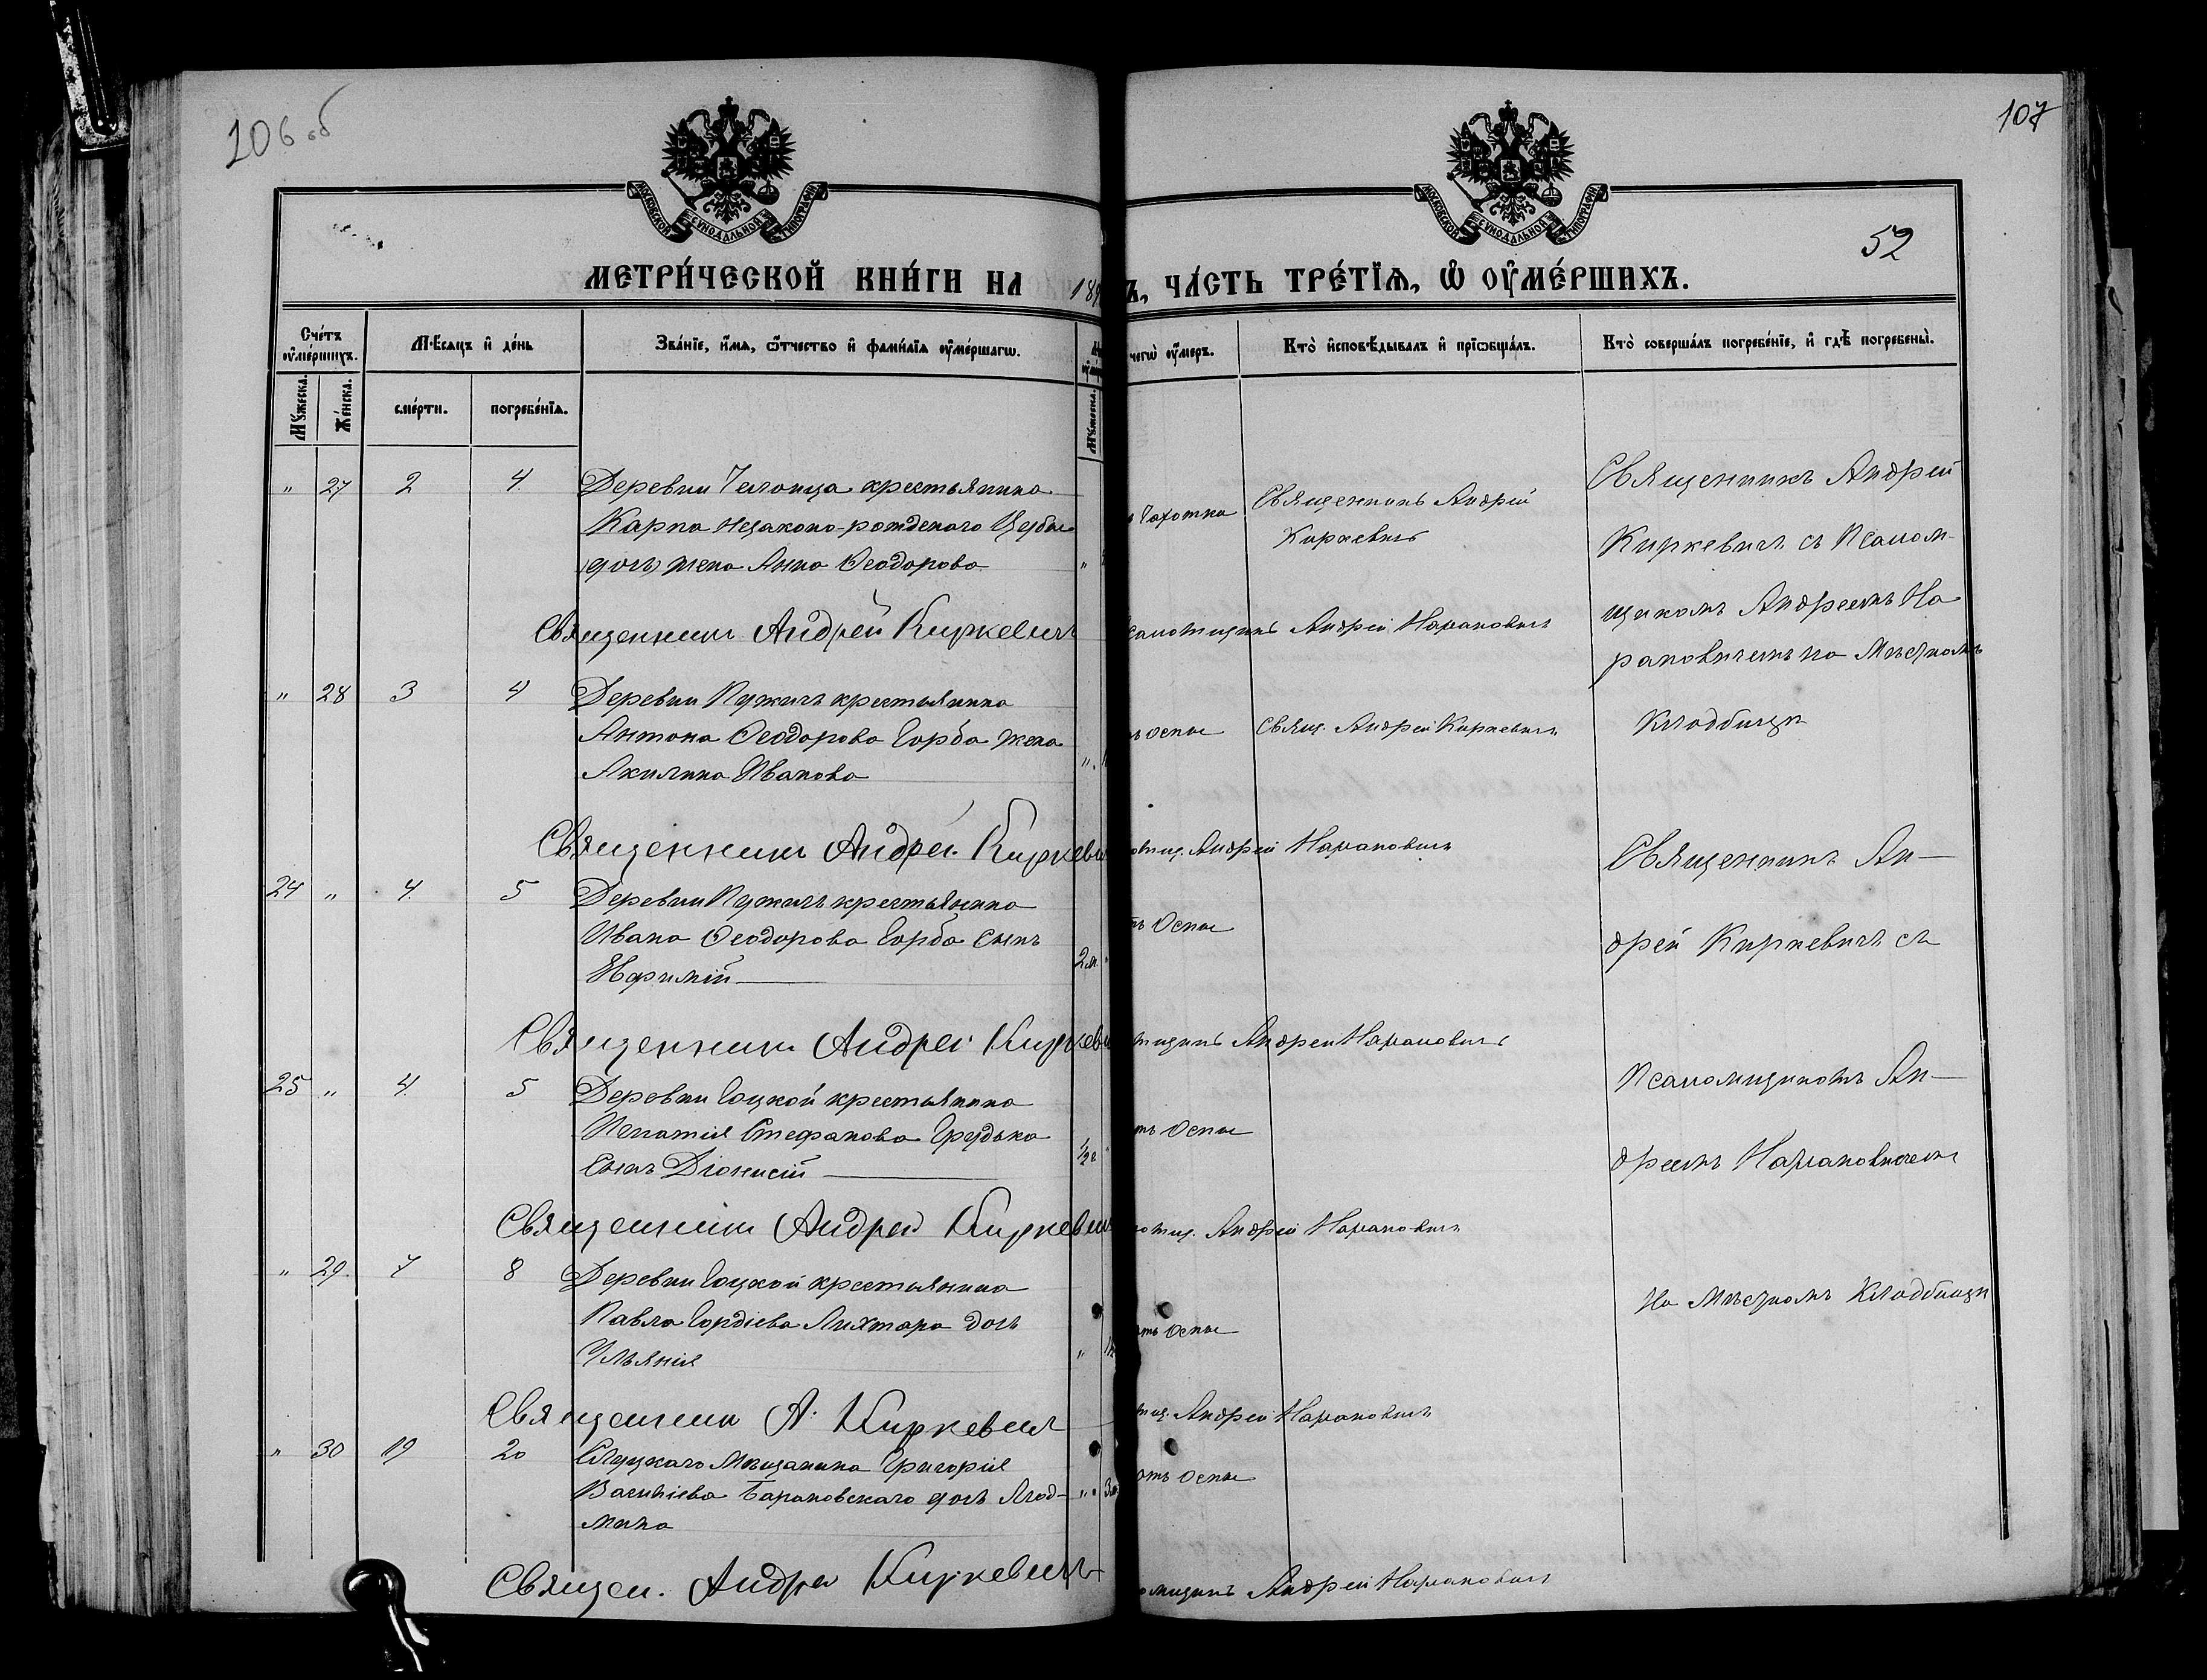 106 об
107
52
МОСКОВСКОЙ СУНОДАЛЬНОЙ ТИПОГРАФІИ
МОСКОВСКОЙ СУНОДАЛЬНОЙ ТИПОГРАФІИ
МЕТРИ́ЧЕСКОЙ КНИ́ГИ НА 189
Ъ, ЧА́СТЬ ТРЕ́ТЇѦ, Ѡ ОУ҆МЕ́РШИХЪ.
Сче́тъ оу҆ме́ршихъ.
Мꙋжеска. Же́нска.
Мѣсяцъ и҆ де́нь
сме́рти. погребе́нїѧ.
Зва́нїе, и҆́мѧ, ѻ҆́тчество и҆ фами́лїѧ оу҆ме́ршагѡ.
Мꙋжеска.
чегѡ̀ оу҆́меръ.
Кто̀ и҆сповѣ́дывалъ и҆ прїѡбща́лъ.
Кто̀ соверша́лъ погребе́нїе, и҆ гдѣ̀ погребены̀.
" 27 2 4 Деревни крестьянина
Карпа незаконо-рожденаго
жена Анна Ѳеодорова "
Чахотки
Священникъ Андрей
Киркевичъ
Священникъ Андрей
Киркевичъ съ Псалом-
щикомъ Андреемъ На
рановичемъ на Мѣстномъ
Кладбищѣ
Священникъ Андрей Киркевичъ
саломщикъ Андрей Нарановичъ
" 28 3 4 Деревни Пужичъ крестьянина
Антона Ѳеодорова Горба жена
Акилина Иванова "
оспы Свящ. Андрей Киркевичъ
Священникъ Андрей Киркевич
омщ. Андрей Нарановичъ
24 " 4 5 Деревни Пужичъ крестьянина
Ивана Ѳеодорова Горба сынъ
Евфимій 2 м.
тъ Оспы
Священникъ Ан-
дрей Киркевичъ съ
Псаломщикомъ Ан-
дреемъ Нарановичемъ
На Мѣстномъ Кладбищѣ
Священникъ Андрей Киркеви
мщикъ Андрей Нарановичъ
25 " 4 5 Деревни Гоцкой крестьянина
Игнатія Стефанова Грудька
Сынъ Діонисій 1/2 г
тъ Оспы
Священникъ Андрей Киркевич
омщ. Андрей Нарановичъ
" 29 7 8 Деревни Гоцкой крестьянина
Павла Гордіева Лихтара дочь
Ульянія "
отъ Оспы
Священникъ А. Киркевич
мщ. Андрей Нарановичъ
" 30 19 20 Слуцкаго Мѣщанина Григорія
Васильева Барановскаго дочь Люд-
мила " 3
отъ Оспы
Священ. Андрей Киркевичъ
омщикъ Андрей Нарановичъ